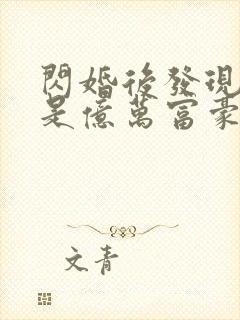 閃婚後發現
是億萬富豪
文青